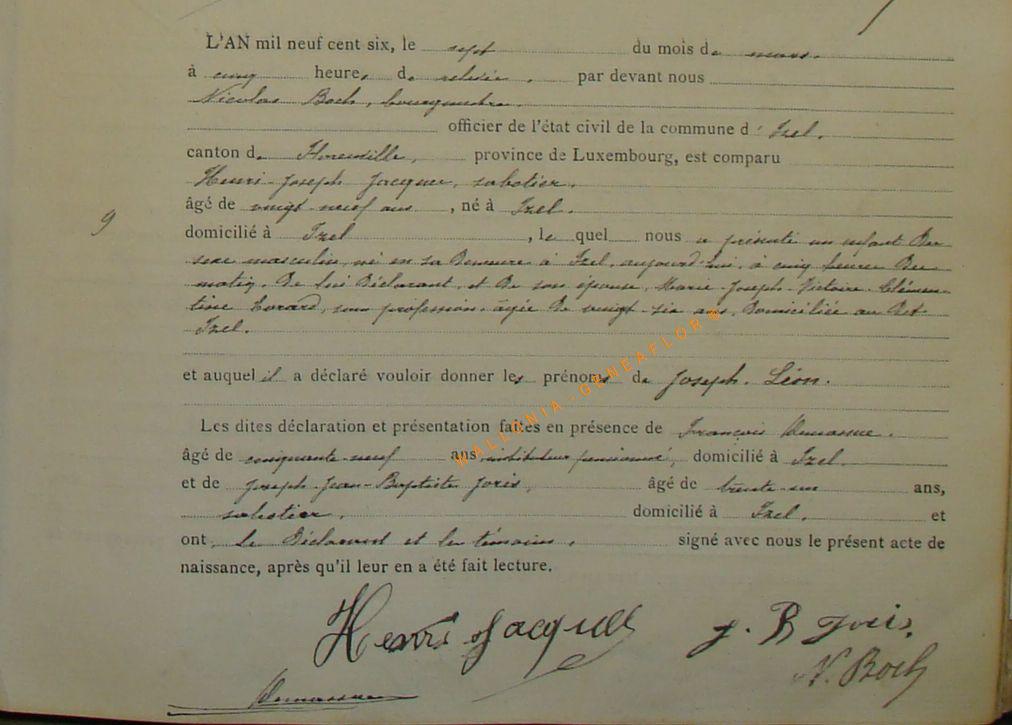 L'AN mil neuf cent six, le sept du mois de mars.
à cinq heures de relevée, par devant nous
Nicolas Boch, bourgmestre,
officier de l'état civil de la commune d' Izel,
canton de Florenville, province de Luxembourg, est comparu
Henri Joseph Jacques, sabotier,
âgé de vingt neuf ans, né à Izel.
9
domicilié à Izel, lequel nous a présenté un enfant du
sexe masculin, né en sa demeure à Izel, aujourd'hui, à cinq heures du
matin, de lui déclarant, et de son épouse, Marie-Joseph-Victoire-Clémen-
tine sans profession, âgée de vingt six ans, domiciliée au dit
Izel.
et auquel il a déclaré vouloir donner les prénoms de Joseph. Léon.
Les dites déclaration et présentation faites en présence de François
âgé de cinquante neuf ans, instituteur pensionné, domicilié à Izel.
et de Joseph Jean-Baptiste Joris, âgé de trente un ans,
sabotier, domicilié à Izel. et
ont, le déclarant et les témoins, signé avec nous le présent acte de
naissance, après qu'il leur en a été fait lecture.
Henri Jacques J. B Joris.
N. Boch
WALLONIA-GENEAFLOR®